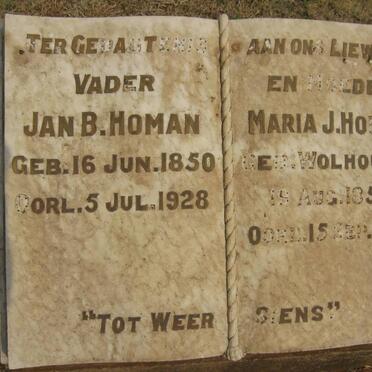 TER GEDAGTENIS AAN ONS LIEWE
VADER EN MOEDER
JAN B. HOMAN
GEB. 16 JUN. 1850
OORL. 5 JUL. 1928
MARIA J. HO
GEB. WOLHO
19 AUG. 185
OORL. 15 SEP.
"TOT WEER SIENS"